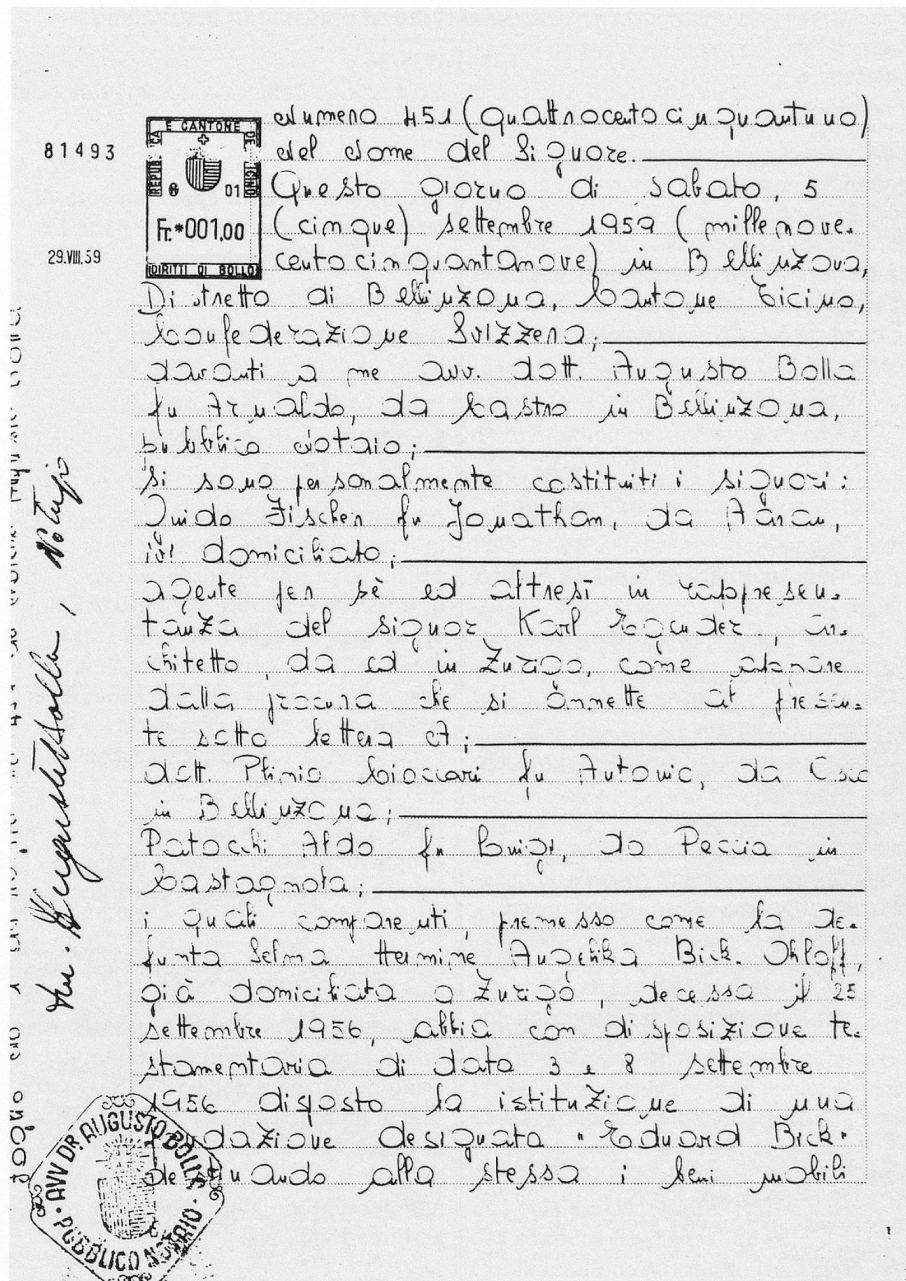 81493
REPUBLICA E CANTONE DEL TICINO
6 01
Fr.*001,00
DIRITTI DI BOLLO
29.VIII.59
Numero 451 (quattrocentocinquantuno)
Nel Nome del Signore.
Questo giorno di sabato, 5
(cinque) settembre 1959 (millenove-
centocinquantanove) in Bellinzona,
Distretto di Bellinzona, Cantone Ticino,
Confederazione Svizzera;
davanti a me avv. dott. Augusto Bolla
fu Arnaldo, da Castro in Bellinzona,
pubblico notaio;
si sono personalmente costituiti i signori:
Guido Fischer fu Jonathan, da Aarau,
ivi domiciliato;
agente per sè ed altresì in rappresen-
tanza del signor Karl Egender, ar-
chitetto, da ed in Zurigo, come appare
dalla procura che si annette al presen-
te sotto lettera A;
dott. Plinio Cioccari fu Antonio, da Osco
in Bellinzona;
Patocchi Aldo fu Luigi, da Peccia in
Castagnola;
i quali comparenti, premesso come la de-
funta Selma Hermine Angelika Bick-Ohloff,
già domiciliata a Zurigo, decessa il 25
settembre 1956, abbia con disposizione te-
stamentaria di data 3 e 8 settembre
1956 disposto la istituzione di una
fondazione designata "Eduard Bick"
destinando alla stessa i beni mobili
Avv. Augusto Bolla, Notaio
AVV. DR. AUGUSTO BOLLA · PUBBLICO NOTAIO ·